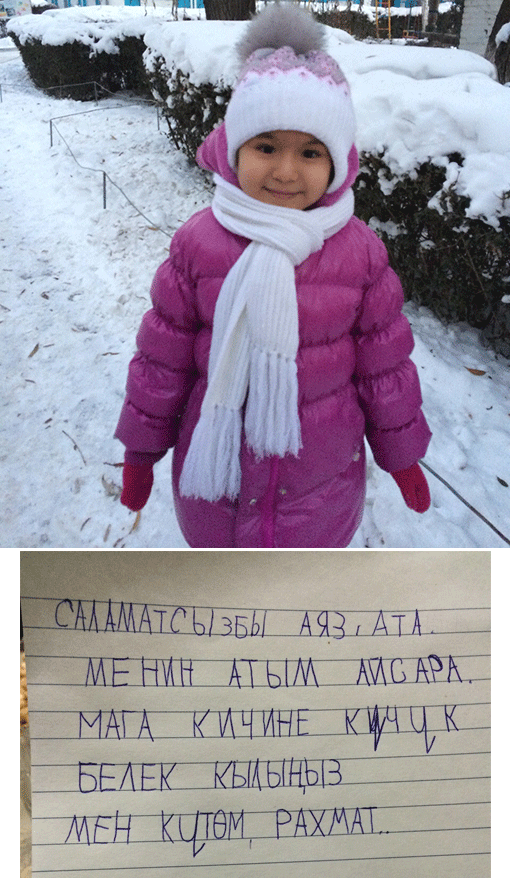 САЛАМАТСЫЗБЫ АЯЗ, АТА.
МЕНИН АТЫМ АЙСАРА.
МАГА КИЧИНЕ КҮЧҮК
БЕЛЕК КЫЛЫҢЫЗ
МЕН КҮТӨМ, РАХМАТ..